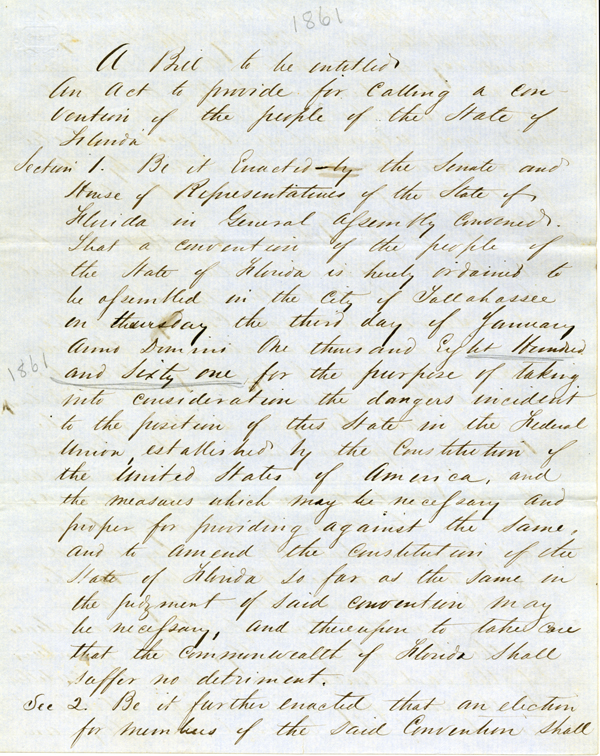 1861
A Bill to be entitled
An Act to provide for Calling a con-
vention of the people of the State of
Florida
Section 1. Be it Enacted by the Senate and
House of Representatives of the State of
Florida in General Assembly Convened.
That a convention of the people of
the State of Florida is hereby ordained to
be assembled in the City of Tallahassee
on thursday the third day of January
Anno Domini One thousand Eight Hundred
1861 and Sixty one, for the purpose of taking
into consideration the dangers incident
to the position of this State in the Federal
Union, established by the Constitution of
the United States of America, and
the measures which may be necessary and
proper for providing against the same,
and to amend the Constitution of the
State of Florida so far as the same in
the judgment of said convention may
be necessary, and thereupon to take care
that the Commonwealth of Florida shall
suffer no detriment.
Sec 2. Be it further enacted that an election
for members of the said Convention shall